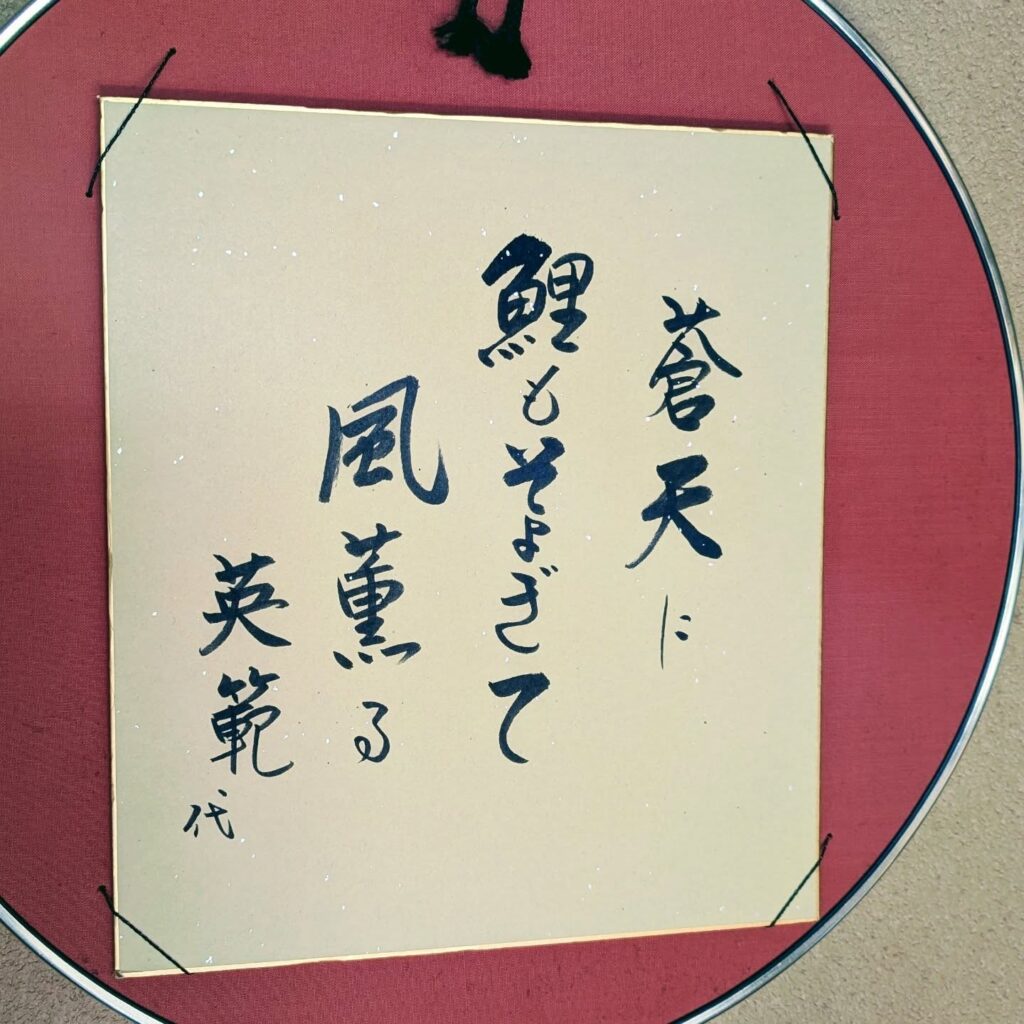 蒼天に
鯉もそよぎて
風薫る
英範
代